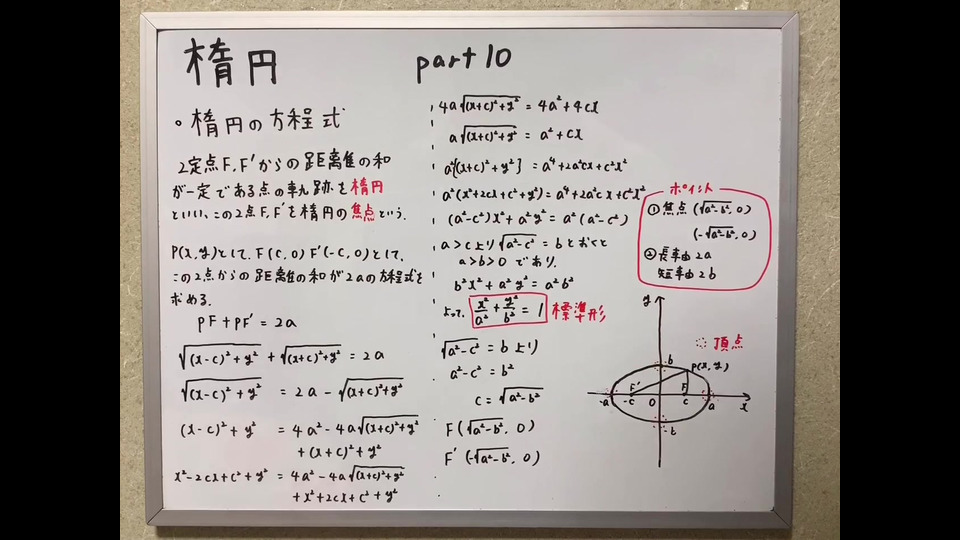 楕円 part 10
。楕円の方程式
2定点F, F'からの距離の和
が一定である点の軌跡を楕円
といい、この2点F, F'を楕円の焦点という.
P(x, y)として, F(c, 0) F'(-c, 0)として,
この2点からの距離の和が2aの方程式を
求める.
PF + PF' = 2a
√((x-c)²+y²) + √((x+c)²+y²) = 2a
√((x-c)²+y²) = 2a - √((x+c)²+y²)
(x-c)²+y² = 4a² - 4a√((x+c)²+y²)
+ (x+c)² + y²
x²-2cx+c²+y² = 4a² - 4a√((x+c)²+y²)
+ x²+2cx+c²+y²
4a√((x+c)²+y²) = 4a² + 4cx
a√((x+c)²+y²) = a² + cx
a²{(x+c)²+y²} = a⁴+2a²cx+c²x²
a²(x²+2cx+c²+y²) = a⁴+2a²cx+c²x²
(a²-c²)x² + a²y² = a²(a²-c²)
a>cより √(a²-c²) = bとおくと
a>b>0 であり.
b²x² + a²y² = a²b²
よって, x²/a² + y²/b² = 1 標準形
√(a²-c²) = b より
a²-c² = b²
c = √(a²-b²)
F(√(a²-b²), 0)
F'(-√(a²-b²), 0)
ポイント
① 焦点 (√(a²-b²), 0)
(-√(a²-b²), 0)
② 長軸 2a
短軸 2b
y
頂点
b
P(x, y)
F' F
-a -c O c a x
-b